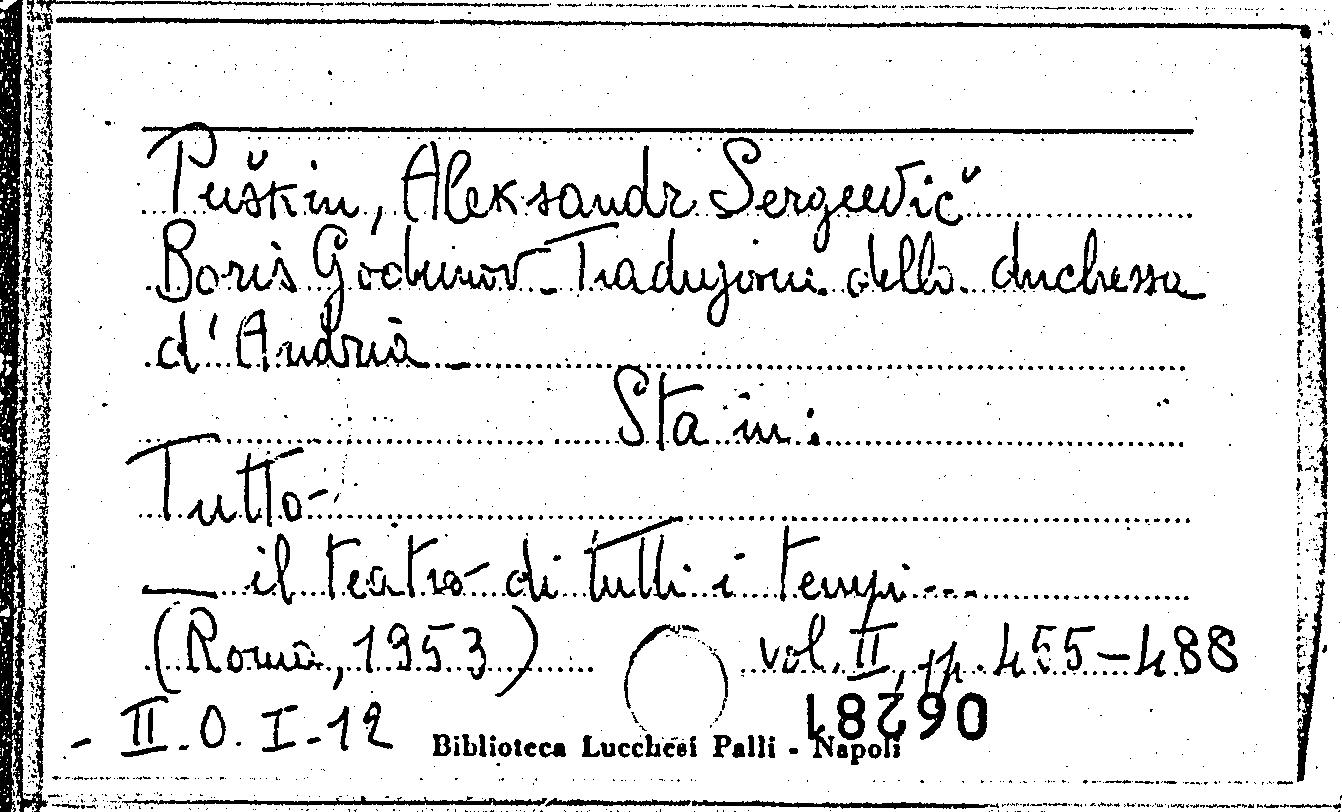 Puškin, Aleksandr Sergeevič
Boris Godunov - Traduzione della duchessa
d'Andria -
Sta in:
Tutto
— il teatro di tutti i tempi...
(Roma, 1953) vol. II, pp. 455-488
- II. O. I-12
Biblioteca Lucchesi Palli - Napoli
062781